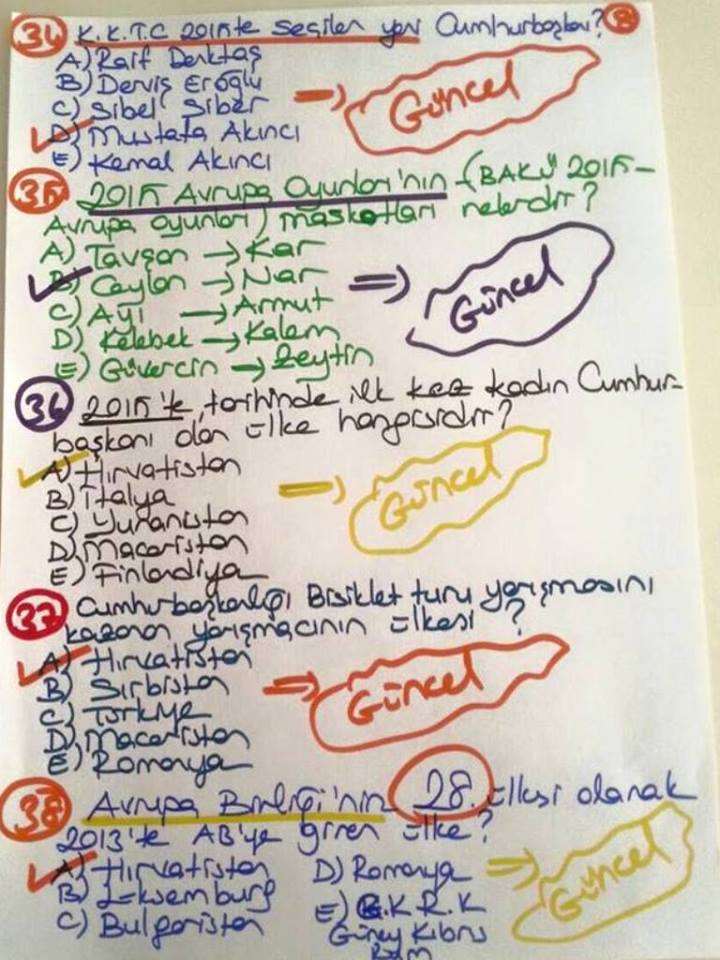 34 K.K.T.C 2015'te Seçilen yeni Cumhurbaşkanı? 8
A) Raif Denktaş
B) Derviş Eroğlu
C) Sibel Siber
D) Mustafa Akıncı
E) Kemal Akıncı
=> Güncel
35 2015 Avrupa Oyunları'nın (BAKÜ 2015-
Avrupa oyunları) maskotları nelerdir?
A) Tavşan → Kar
B) Ceylan → Nar
C) Ayı → Armut
D) Kelebek → Kalem
E) Güvercin → Zeytin
=> Güncel
36 2015'te, tarihinde ilk kez kadın Cumhur-
başkanı olan ülke hangisidir?
A) Hırvatistan
B) İtalya
C) Yunanistan
D) Macaristan
E) Finlandiya
=> Güncel
37 Cumhurbaşkanlığı Bisiklet turu yarışmasını
kazanan yarışmacının ülkesi ?
A) Hırvatistan
B) Sırbistan
C) Türkiye
D) Macaristan
E) Romanya
=> Güncel
38 Avrupa Birliği'nin 28. ülkesi olarak
2013'te AB'ye giren ülke?
A) Hırvatistan
B) Lüksemburg
C) Bulgaristan
D) Romanya
E) G.K.R.K
Güney Kıbrıs
Rum
=> Güncel